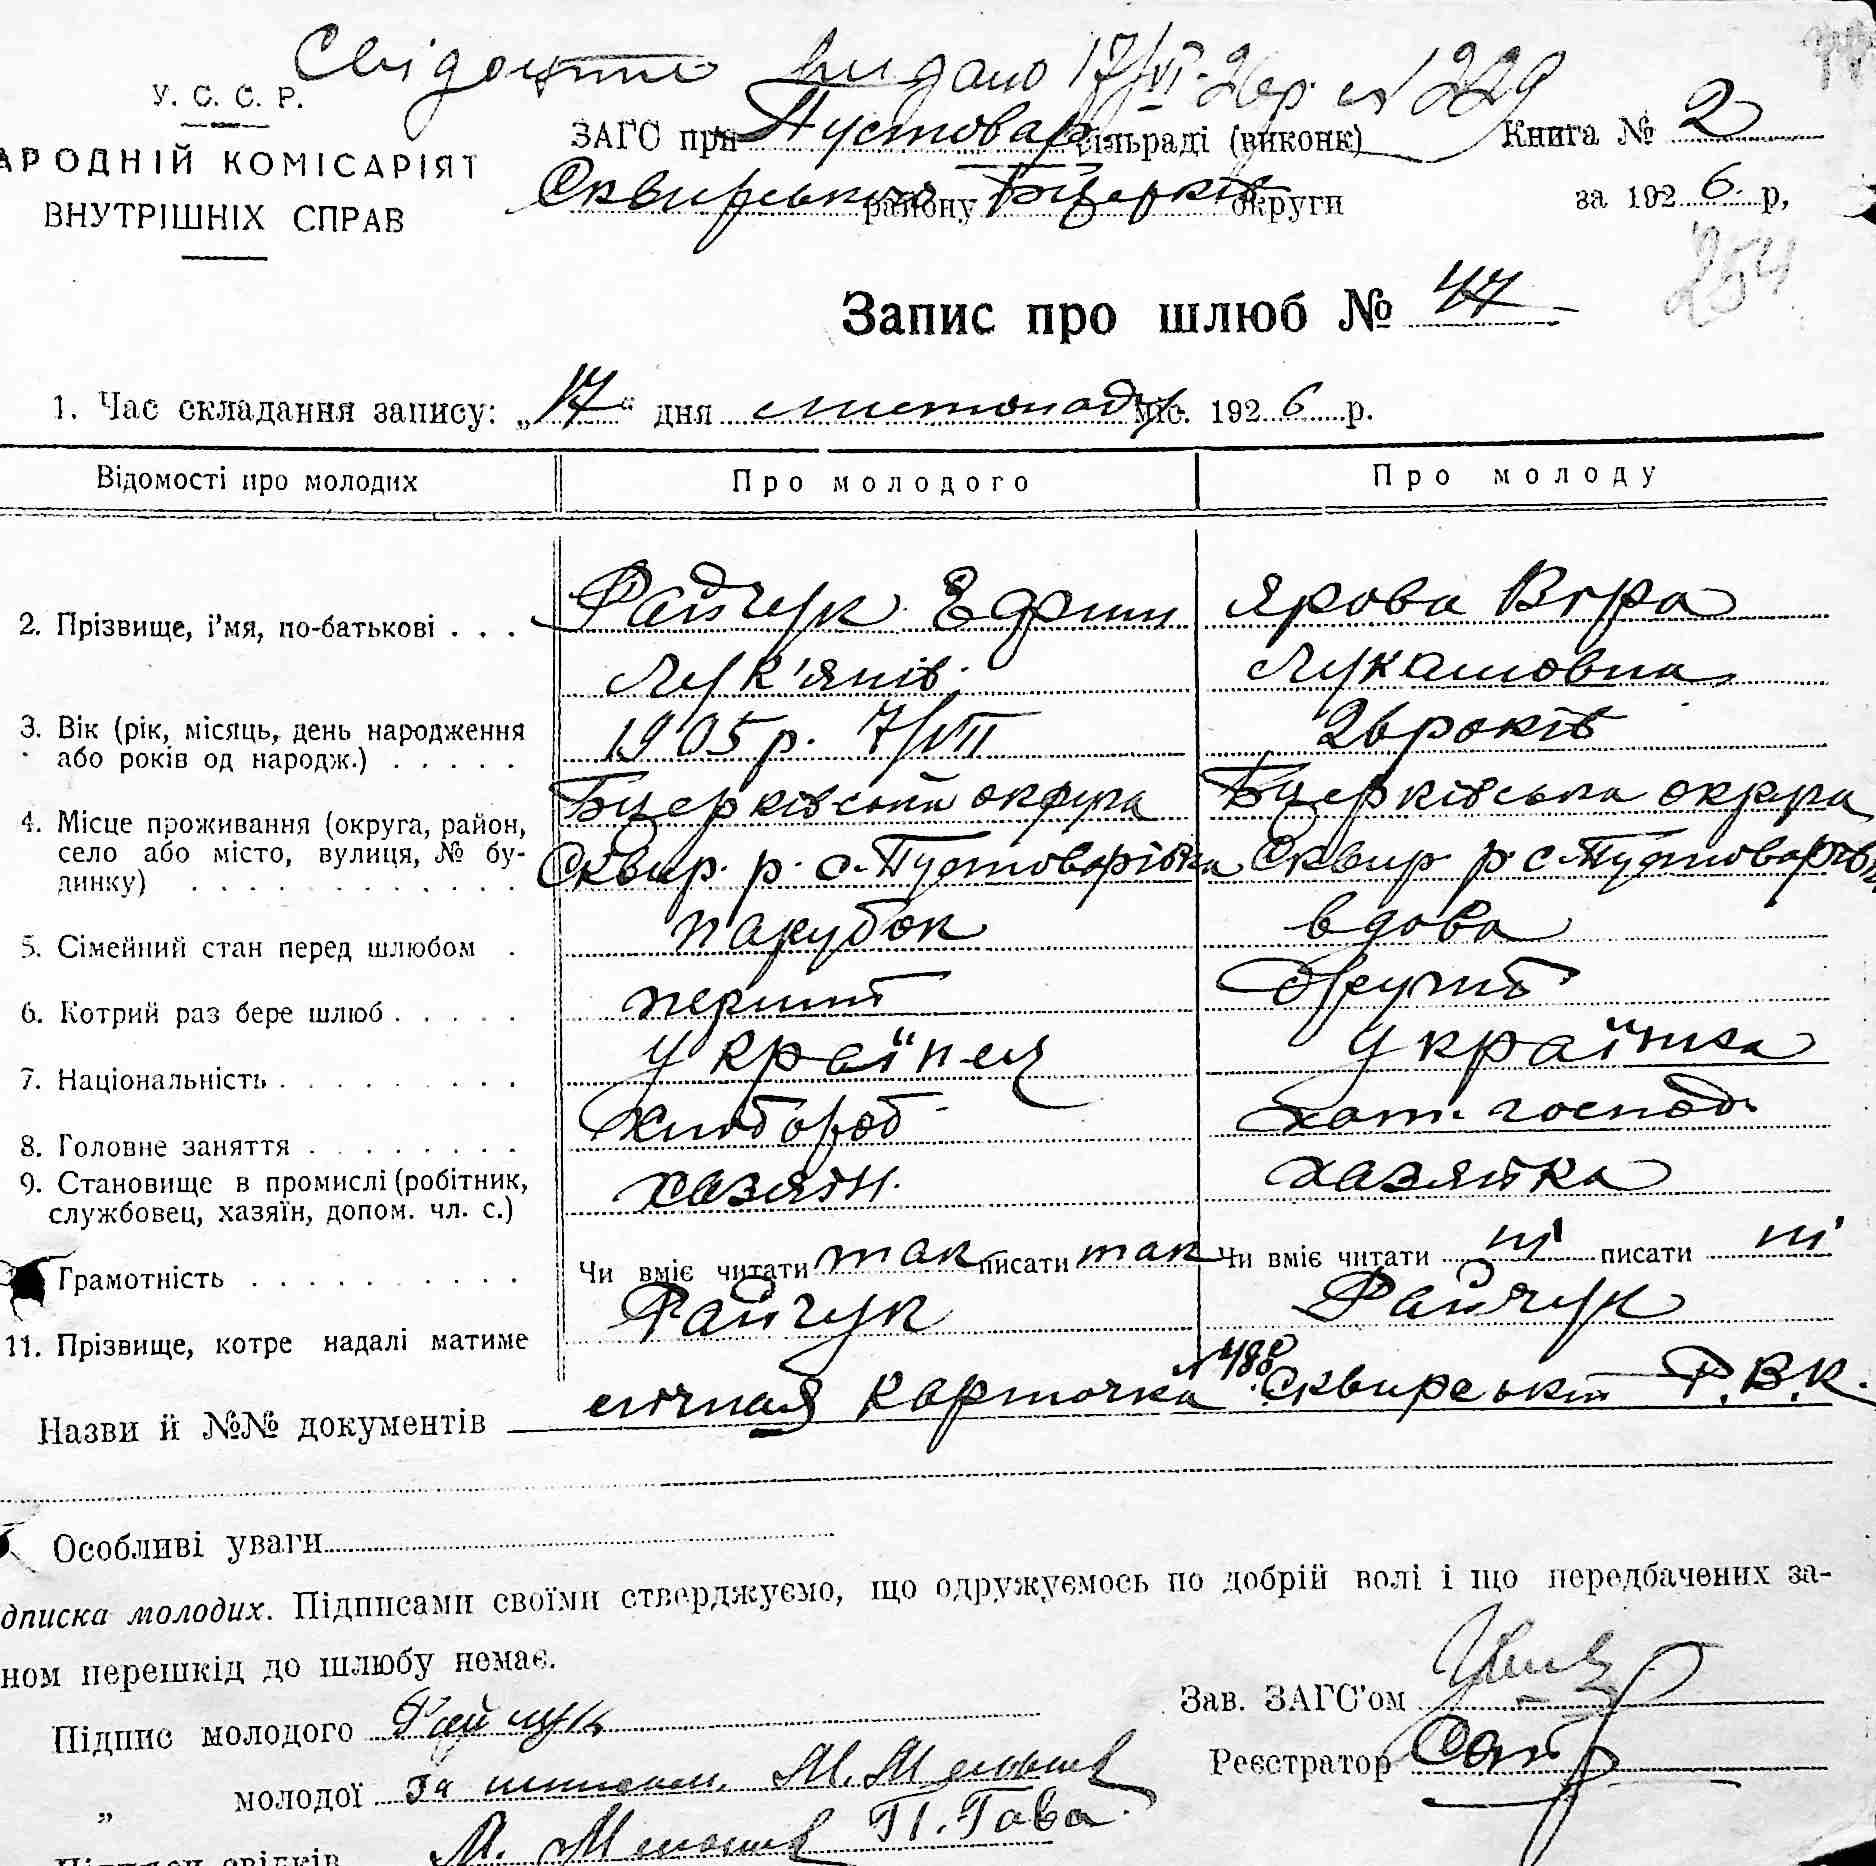 Свідоцтво видано 17/VI. 26р. № 1229
У. С. С. Р.
АРОДНІЙ КОМІСАРІЯТ
ВНУТРІШНІХ СПРАВ
ЗАГС при Пустовар. сільраді (виконк)
Сквирського району Бцерків округи
Книга № 2
за 1926. р,
254
Запис про шлюб № 47
1. Час складання запису: „17“ дня листопаду міс. 1926 р.
Відомості про молодих Про молодого Про молоду
2. Прізвище, і'мя, по-батькові . . . Райчук Ефим Ярова Віра
Лук'янів. Лукашовна
3. Вік (рік, місяць, день народження або років од народж.) . . . . . 1905 р. 7/VII 26 років
4. Місце проживання (округа, район, село або місто, вулиця, № будинку) . . . . . . . . . . . . Бцерківська округа Бцерківська округа
Сквир. р. с. Пустоварівка Сквир р. с. Пустоварівк
5. Сімейний стан перед шлюбом . парубок вдова
6. Котрий раз бере шлюб . . . . . перший другий
7. Національність . . . . . . . . . українец українка
8. Головне заняття . . . . . . . . хлібороб хат. господ.
9. Становище в промислі (робітник, службовец, хазяїн, допом. чл. с.) хазяїн. хазяйка
Грамотність . . . . . . . . . . Чи вміє читати так писати так Чи вміє читати ні писати ні
11. Прізвище, котре надалі матиме Райчук Райчук
Назви й №№ документів личная карточка № 488 Сквирський Р.В.К.
Особливі уваги
дписка молодих. Підписами своїми стверджуємо, що одружуємось по добрій волі і що передбачених за-
ном перешкід до шлюбу немає.
Зав. ЗАГС'ом
Підпис молодого Райчук
Реєстратор
„ молодої М. М
М. П. Гава.